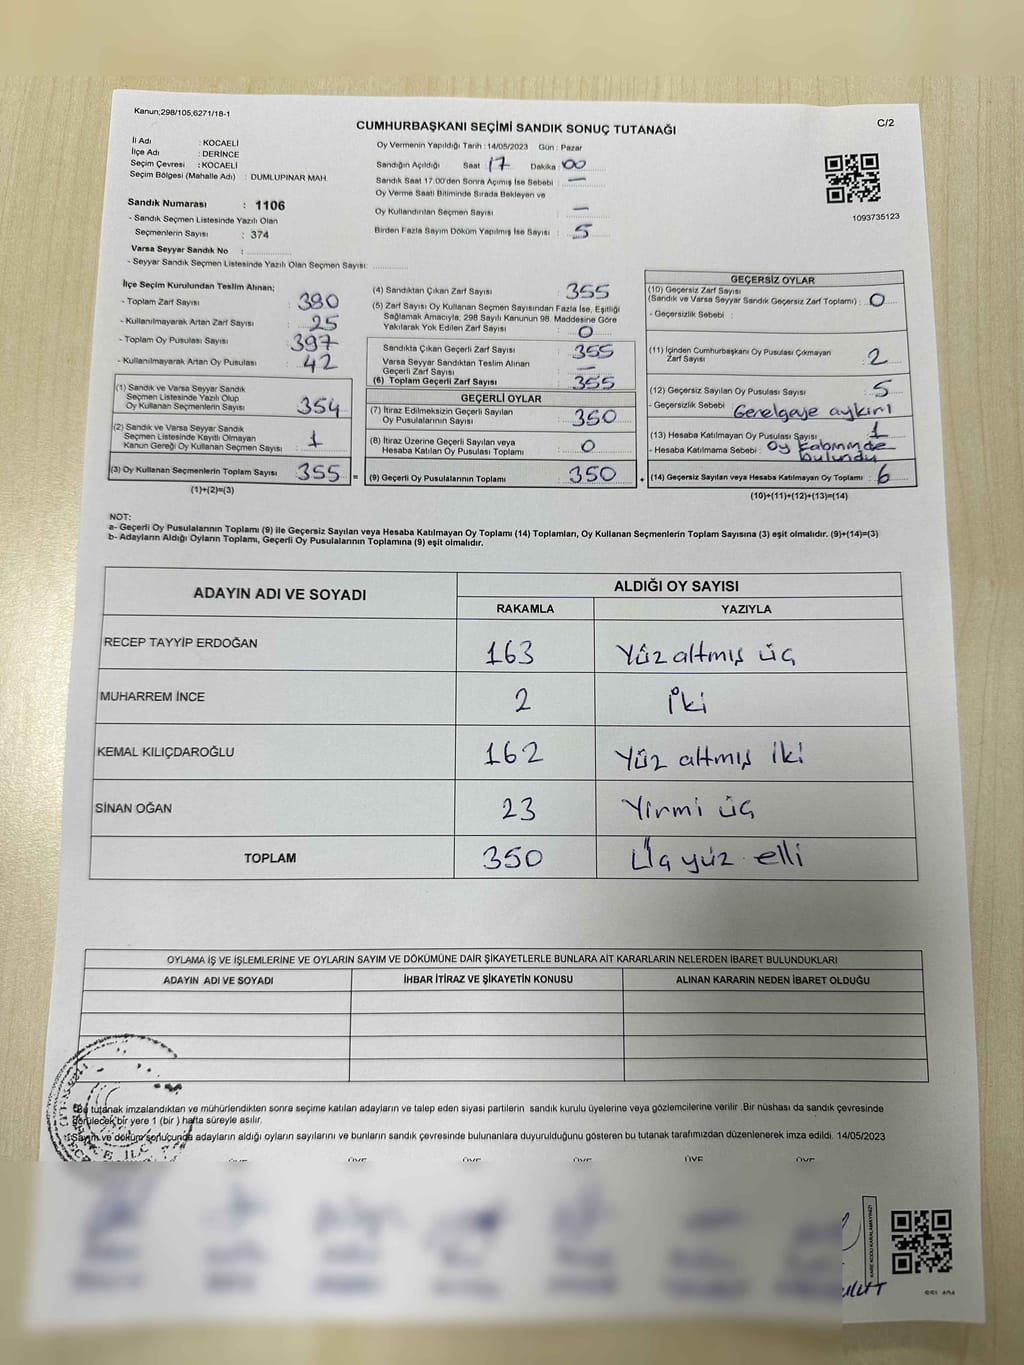 Kanun;298/105;6271/18-1
C/2
CUMHURBAŞKANI SEÇİMİ SANDIK SONUÇ TUTANAĞI
İl Adı : KOCAELİ
İlçe Adı : DERİNCE
Seçim Çevresi : KOCAELİ
Seçim Bölgesi (Mahalle Adı) : DUMLUPINAR MAH.
Sandık Numarası : 1106
- Sandık Seçmen Listesinde Yazılı Olan
Seçmenlerin Sayısı : 374
Varsa Seyyar Sandık No :
- Seyyar Sandık Seçmen Listesinde Yazılı Olan Seçmen Sayısı:
Oy Vermenin Yapıldığı Tarih : 14/05/2023 Gün : Pazar
Sandığın Açıldığı Saat : 17 Dakika : 00
Sandık Saat 17.00'den Sonra Açılmış İse Sebebi : —
Oy Verme Saati Bitiminde Sırada Bekleyen ve
Oy Kullandırılan Seçmen Sayısı : —
Birden Fazla Sayım Döküm Yapılmış İse Sayısı : 5
1093735123
İlçe Seçim Kurulundan Teslim Alınan;
- Toplam Zarf Sayısı : 380
- Kullanılmayarak Artan Zarf Sayısı : 25
- Toplam Oy Pusulası Sayısı : 397
- Kullanılmayarak Artan Oy Pusulası : 42
(1) Sandık ve Varsa Seyyar Sandık
Seçmen Listesinde Yazılı Olup
Oy Kullanan Seçmenlerin Sayısı : 354
(2) Sandık ve Varsa Seyyar Sandık
Seçmen Listesinde Kayıtlı Olmayan
Kanun Gereği Oy Kullanan Seçmen Sayısı : 1
(3) Oy Kullanan Seçmenlerin Toplam Sayısı : 355 =
(1)+(2)=(3)
(4) Sandıktan Çıkan Zarf Sayısı : 355
(5) Zarf Sayısı Oy Kullanan Seçmen Sayısından Fazla İse, Eşitliği
Sağlamak Amacıyla, 298 Sayılı Kanunun 98. Maddesine Göre
Yakılarak Yok Edilen Zarf Sayısı : 0
Sandıkta Çıkan Geçerli Zarf Sayısı : 355
Varsa Seyyar Sandıktan Teslim Alınan
Geçerli Zarf Sayısı : —
(6) Toplam Geçerli Zarf Sayısı : 355
GEÇERLİ OYLAR
(7) İtiraz Edilmeksizin Geçerli Sayılan
Oy Pusulalarının Sayısı : 350
(8) İtiraz Üzerine Geçerli Sayılan veya
Hesaba Katılan Oy Pusulası Toplamı : 0
(9) Geçerli Oy Pusulalarının Toplamı : 350 +
GEÇERSİZ OYLAR
(10) Geçersiz Zarf Sayısı
(Sandık ve Varsa Seyyar Sandık Geçersiz Zarf Toplamı) : 0
- Geçersizlik Sebebi :
(11) İçinden Cumhurbaşkanı Oy Pusulası Çıkmayan
Zarf Sayısı : 2
(12) Geçersiz Sayılan Oy Pusulası Sayısı : 5
- Geçersizlik Sebebi : Genelgeye aykırı
(13) Hesaba Katılmayan Oy Pusulası Sayısı : 1
- Hesaba Katılmama Sebebi : Oy kabininde
bulundu
(14) Geçersiz Sayılan veya Hesaba Katılmayan Oy Toplamı : 6
(10)+(11)+(12)+(13)=(14)
NOT:
a- Geçerli Oy Pusulalarının Toplamı (9) ile Geçersiz Sayılan veya Hesaba Katılmayan Oy Toplamı (14) Toplamları, Oy Kullanan Seçmenlerin Toplam Sayısına (3) eşit olmalıdır. (9)+(14)=(3)
b- Adayların Aldığı Oyların Toplamı, Geçerli Oy Pusulalarının Toplamına (9) eşit olmalıdır.
ADAYIN ADI VE SOYADI
ALDIĞI OY SAYISI
RAKAMLA YAZIYLA
RECEP TAYYİP ERDOĞAN 163 Yüz altmış üç
MUHARREM İNCE 2 İki
KEMAL KILIÇDAROĞLU 162 Yüz altmış iki
SİNAN OĞAN 23 Yirmi üç
TOPLAM 350 Üç yüz elli
OYLAMA İŞ VE İŞLEMLERİNE VE OYLARIN SAYIM VE DÖKÜMÜNE DAİR ŞİKAYETLERLE BUNLARA AİT KARARLARIN NELERDEN İBARET BULUNDUKLARI
ADAYIN ADI VE SOYADI İHBAR İTİRAZ VE ŞİKAYETİN KONUSU ALINAN KARARIN NEDEN İBARET OLDUĞU
Bu tutanak imzalandıktan ve mühürlendikten sonra seçime katılan adayların ve talep eden siyasi partilerin sandık kurulu üyelerine veya gözlemcilerine verilir .Bir nüshası da sandık çevresinde
görülecek bir yere 1 (bir ) hafta süreyle asılır.
Sayım ve döküm sonucunda adayların aldığı oyların sayılarını ve bunların sandık çevresinde bulunanlara duyurulduğunu gösteren bu tutanak tarafımızdan düzenlenerek imza edildi. 14/05/2023
ÜYE ÜYE ÜYE ÜYE ÜYE ÜYE
KARE KODU KARALAMAYINIZ!